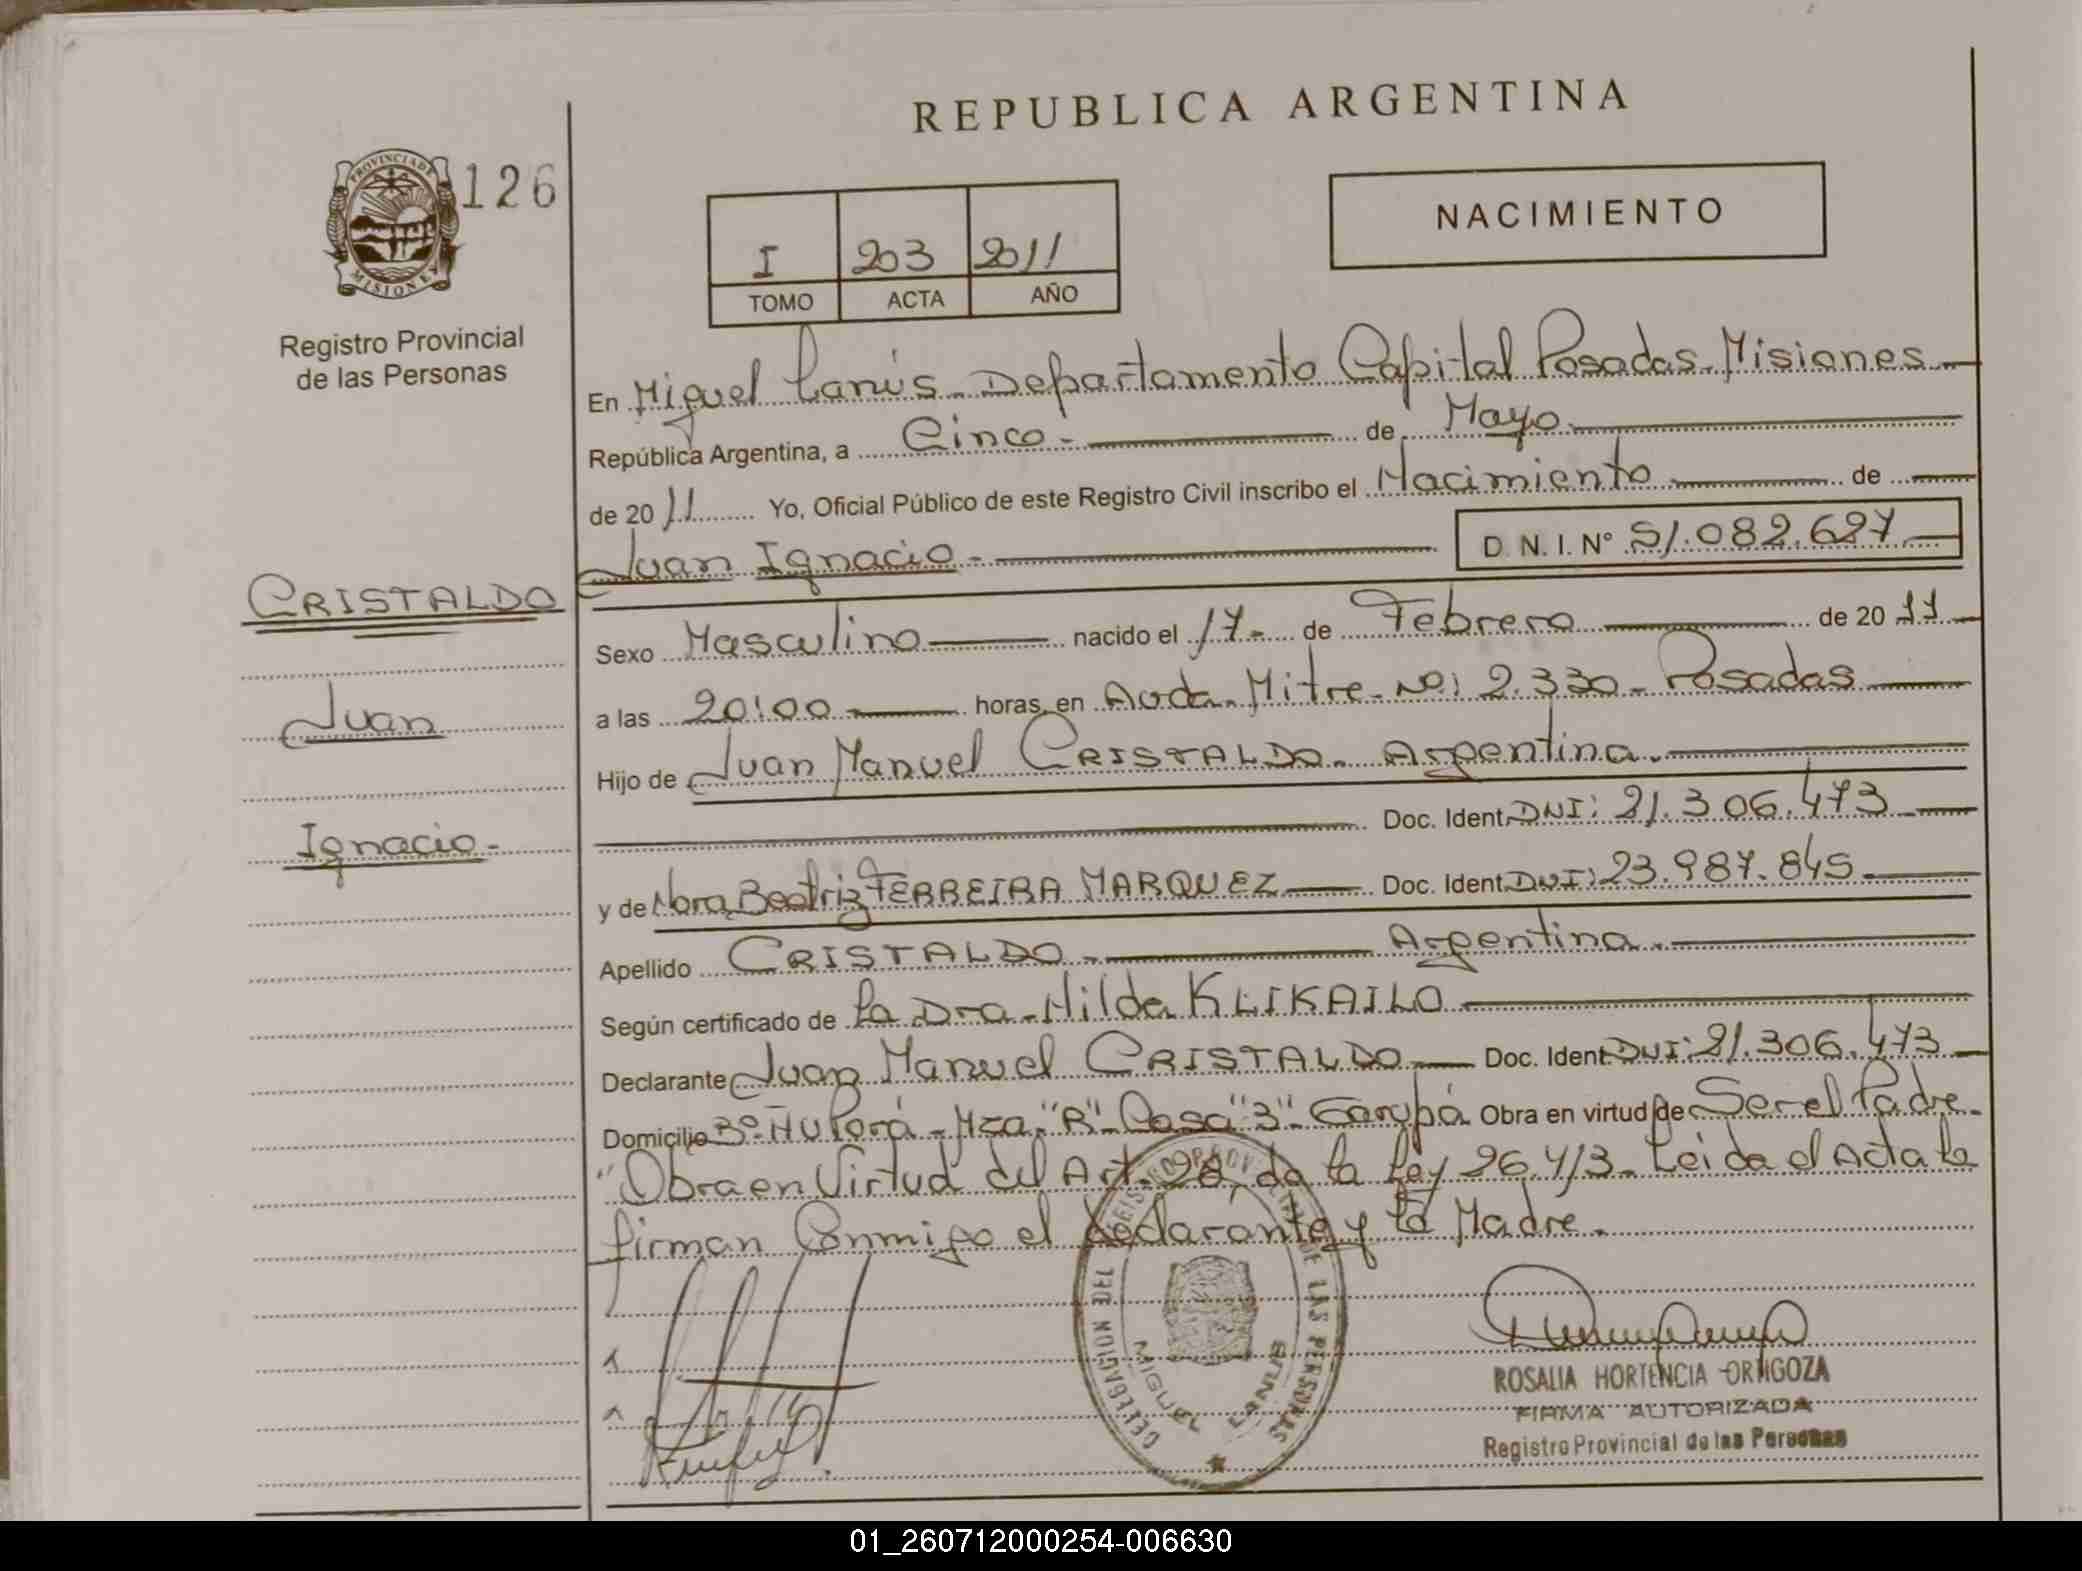 REPUBLICA ARGENTINA
PROVINCIA DE
MISIONES
126
Registro Provincial
de las Personas
I 203 2011
TOMO ACTA AÑO
NACIMIENTO
En Miguel Lanús - Departamento Capital Posadas - Misiones
República Argentina, a Cinco - de Mayo
de 2011 Yo, Oficial Público de este Registro Civil inscribo el Nacimiento de
Juan Ignacio - D. N. I. Nº 51.082.627
CRISTALDO
Juan
Ignacio -
Sexo Masculino nacido el 17 - de Febrero de 2011
a las 20:00 horas, en Avda. Mitre - No: 2.330 - Posadas
Hijo de Juan Manuel CRISTALDO - Argentina
Doc. Ident. DNI: 21.306.473
y de Nora Beatriz FERREIRA MARQUEZ Doc. Ident. DNI: 23.987.845
Apellido CRISTALDO - Argentina
Según certificado de La Dra - Hilda KLIKAILO
Declarante Juan Manuel CRISTALDO Doc. Ident. DNI: 21.306.473
Domicilio Bº Ñu Porá - Mza "R" - Casa "3" - Garupá Obra en virtud de Ser el Padre -
"Obra en Virtud del Art. 28, de la Ley 26.413 - Leida el Acta la
firman Conmigo el declarante y la Madre.
DELEGACION DEL REGISTRO PROVINCIAL DE LAS PERSONAS
MIGUEL LANUS
ROSALIA HORTENCIA ORTIGOZA
FIRMA AUTORIZADA
Registro Provincial de las Personas
01_260712000254-006630